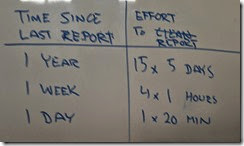 TIME SINCE
LAST REPORT
EFFORT
TO CLEAN
REPORT
1 YEAR
15 x 5 DAYS
1 WEEK
4 x 1 HOURS
1 DAY
1 x 20 MIN